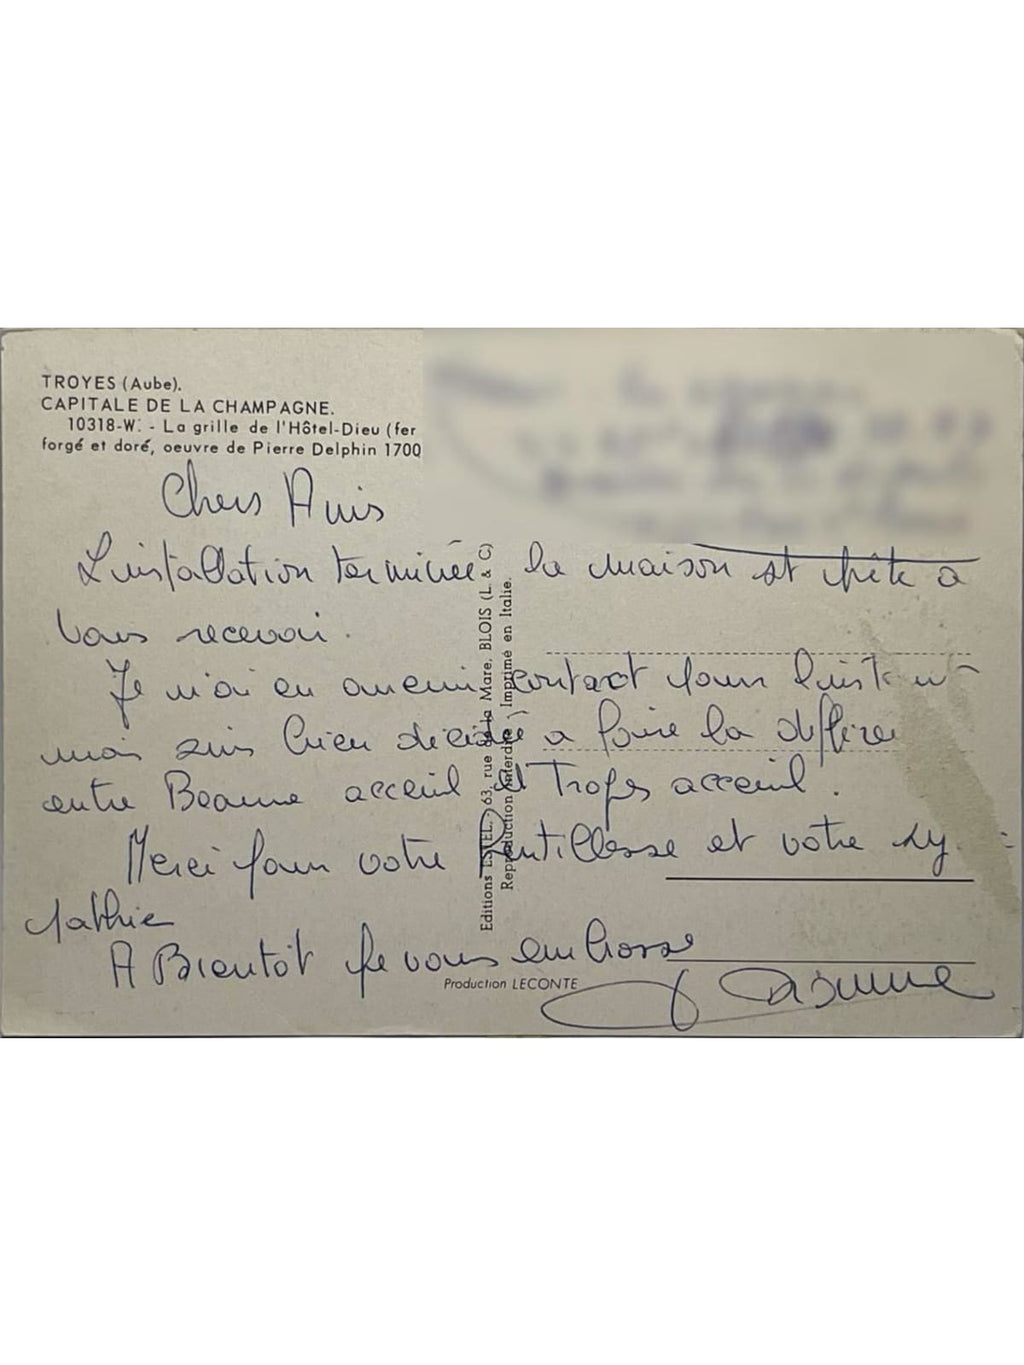 TROYES (Aube).
CAPITALE DE LA CHAMPAGNE.
10318-W. - La grille de l'Hôtel-Dieu (fer
forgé et doré, oeuvre de Pierre Delphin 1700
Chers Amis
L'installation terminée la maison est prête à
vous recevoir.
Je n'ai eu aucun contact pour l'instant
mais suis bien décidée a faire la différen
entre Beaune acceuil et Troyes acceuil.
Merci pour votre Gentillesse et votre sym
pathie
A Bientôt Je vous embrasse
Editions ESTEL, 63, rue de la Mare, BLOIS (L. & C)
Reproduction Interdite. Imprimé en Italie.
Production LECONTE